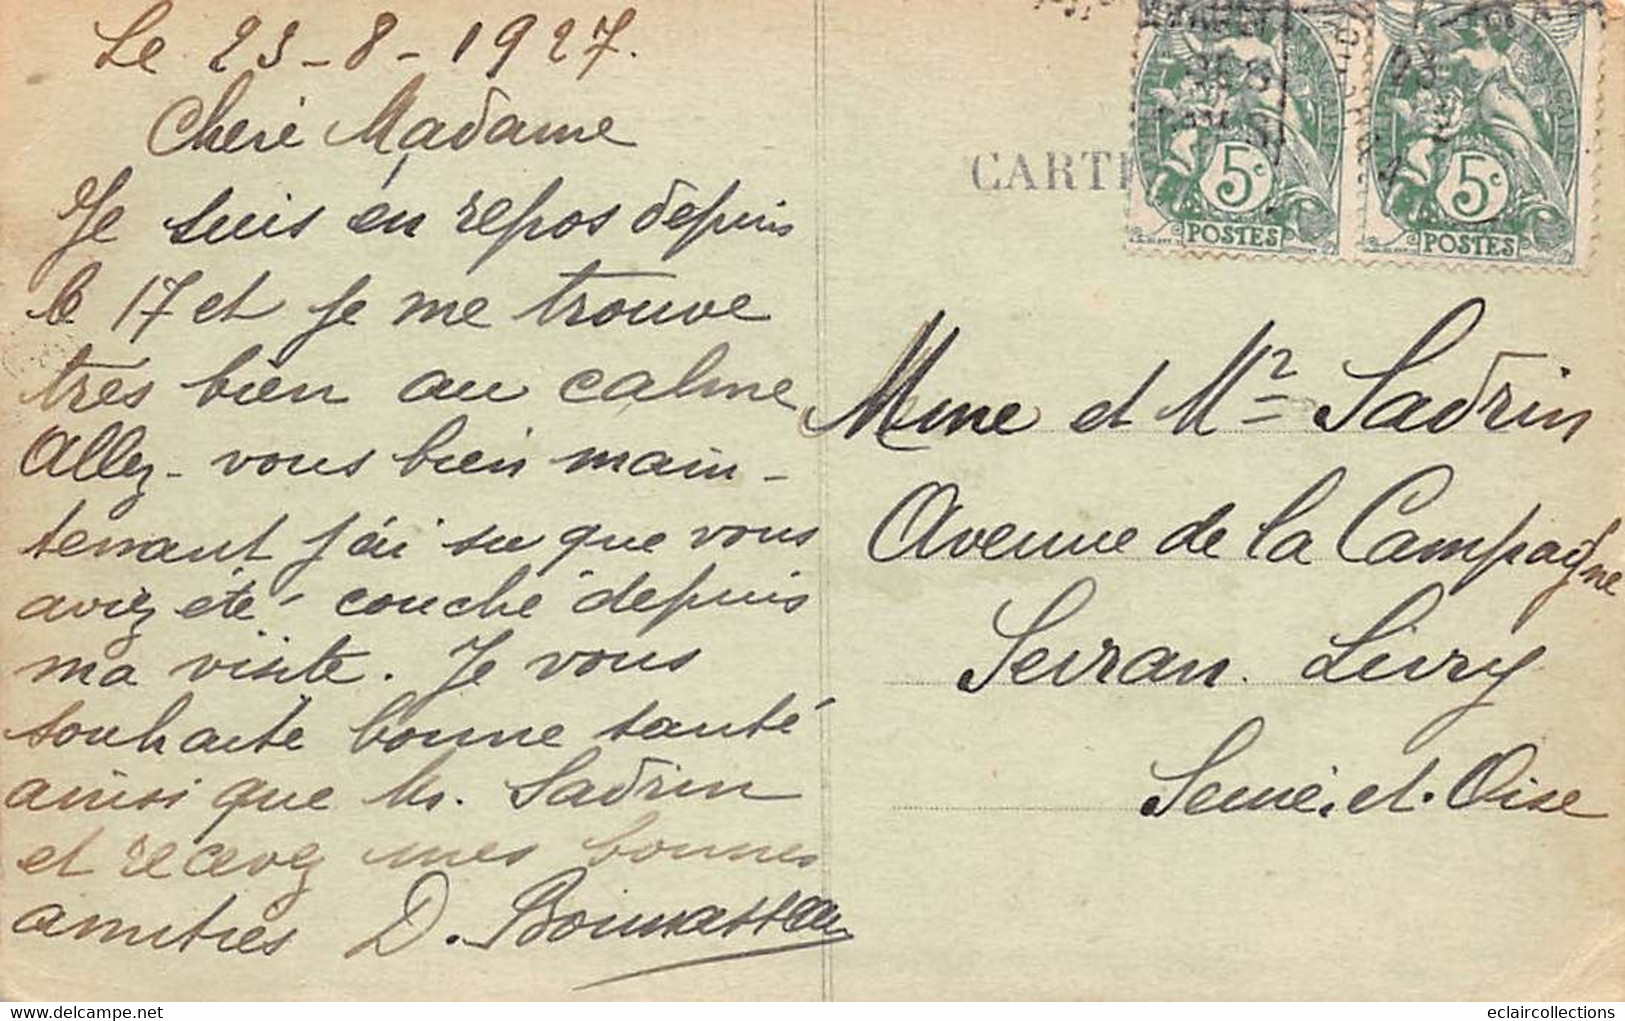 Le 23-8-1927.
Chere Madame
Je suis en repos depuis
le 17 et je me trouve
tres bien au calme
Allez-vous bien main-
tenant j'ai su que vous
aviez été couché depuis
ma visite. Je vous
souhaite bonne santé
ainsi que Mr. Sadrin
et recevez mes bonnes
amitiés D.
CARTE
5c
POSTES
5c
POSTES
Mme et Mr Sadrin
Avenue de la Campagne
Sevran. Livry
Seine. et. Oise
eclaircollections